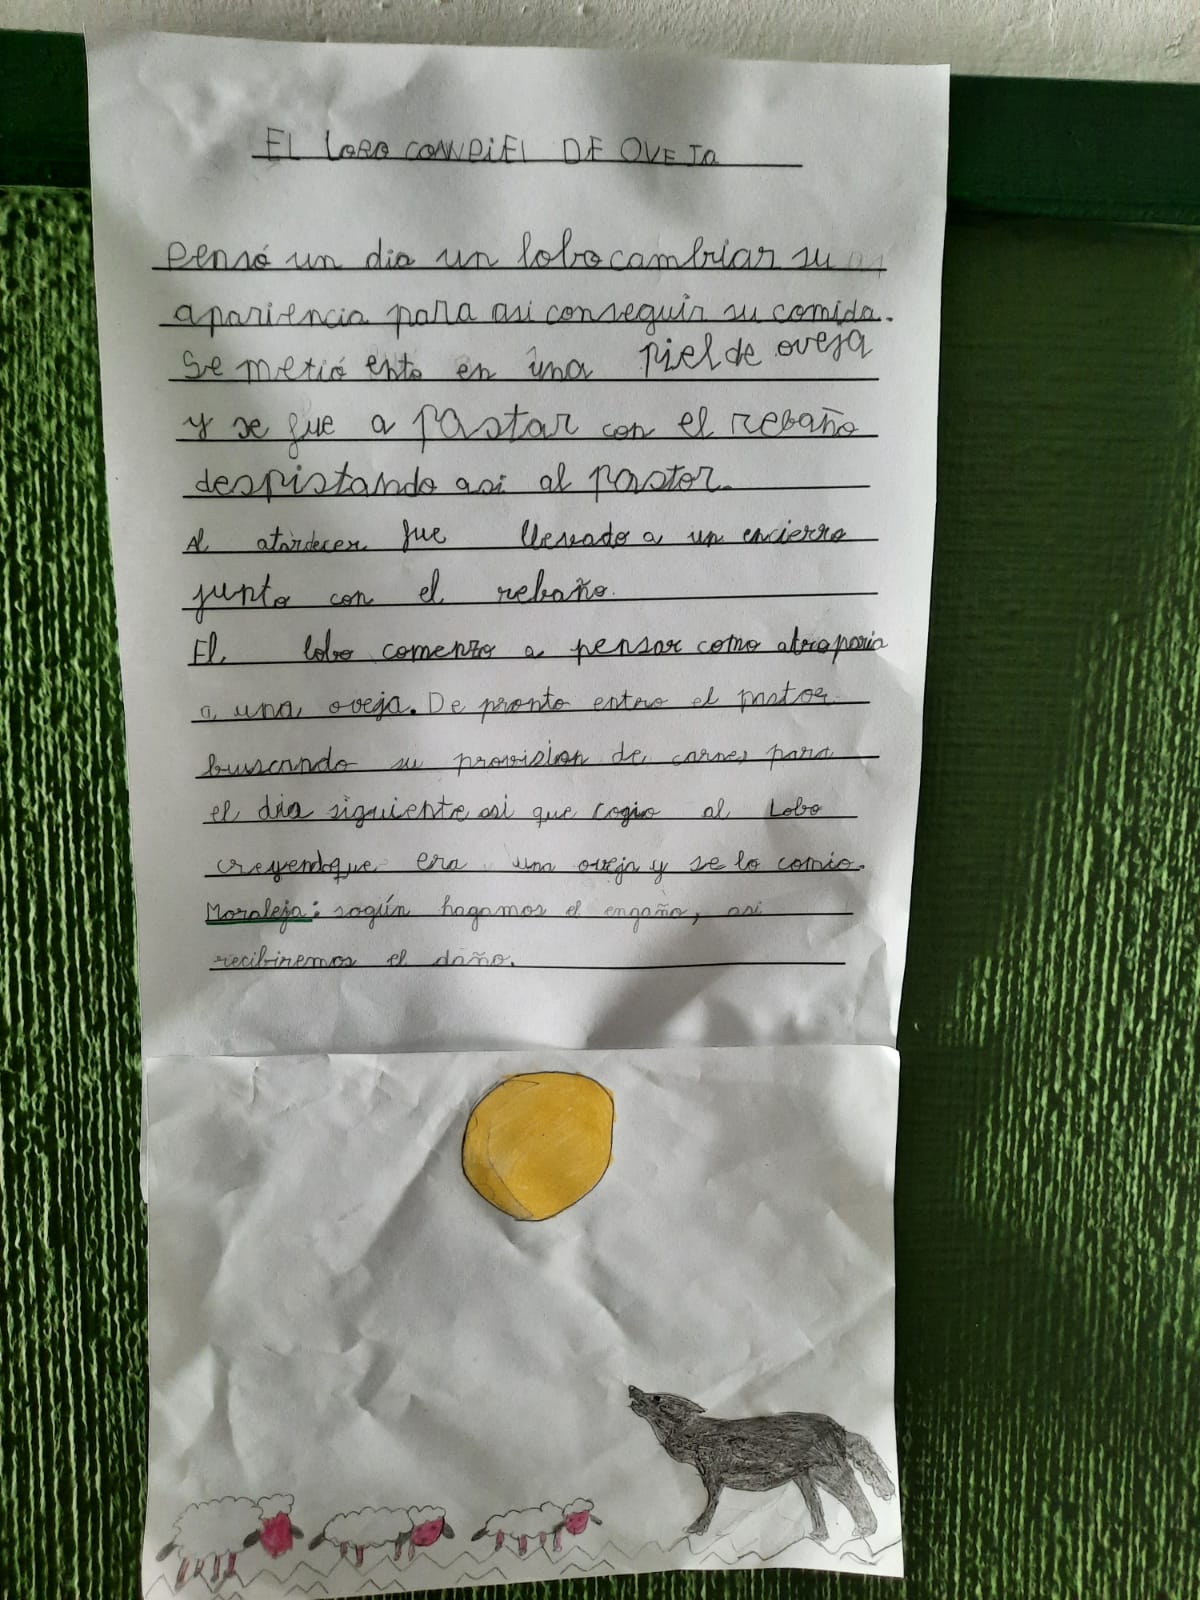 EL LOBO CON PiEL DE OVEJa
Pensó un dia un lobo cambiar su
apariencia para asi conseguir su comida.
Se metió ento en una piel de oveja
y se fue a pastar con el rebaño
despistando asi al pastor.
Al atardecer fue llevado a un encierro
junto con el rebaño.
El lobo comenzo a pensar como atraparia
a una oveja. De pronto entro el pastor
buscando su provision de carne para
el dia siguiente asi que cogio al Lobo
creyendque era una oveja y se lo comio.
Moraleja: sogún hagamos el engaño, asi
recibiremos el daño.